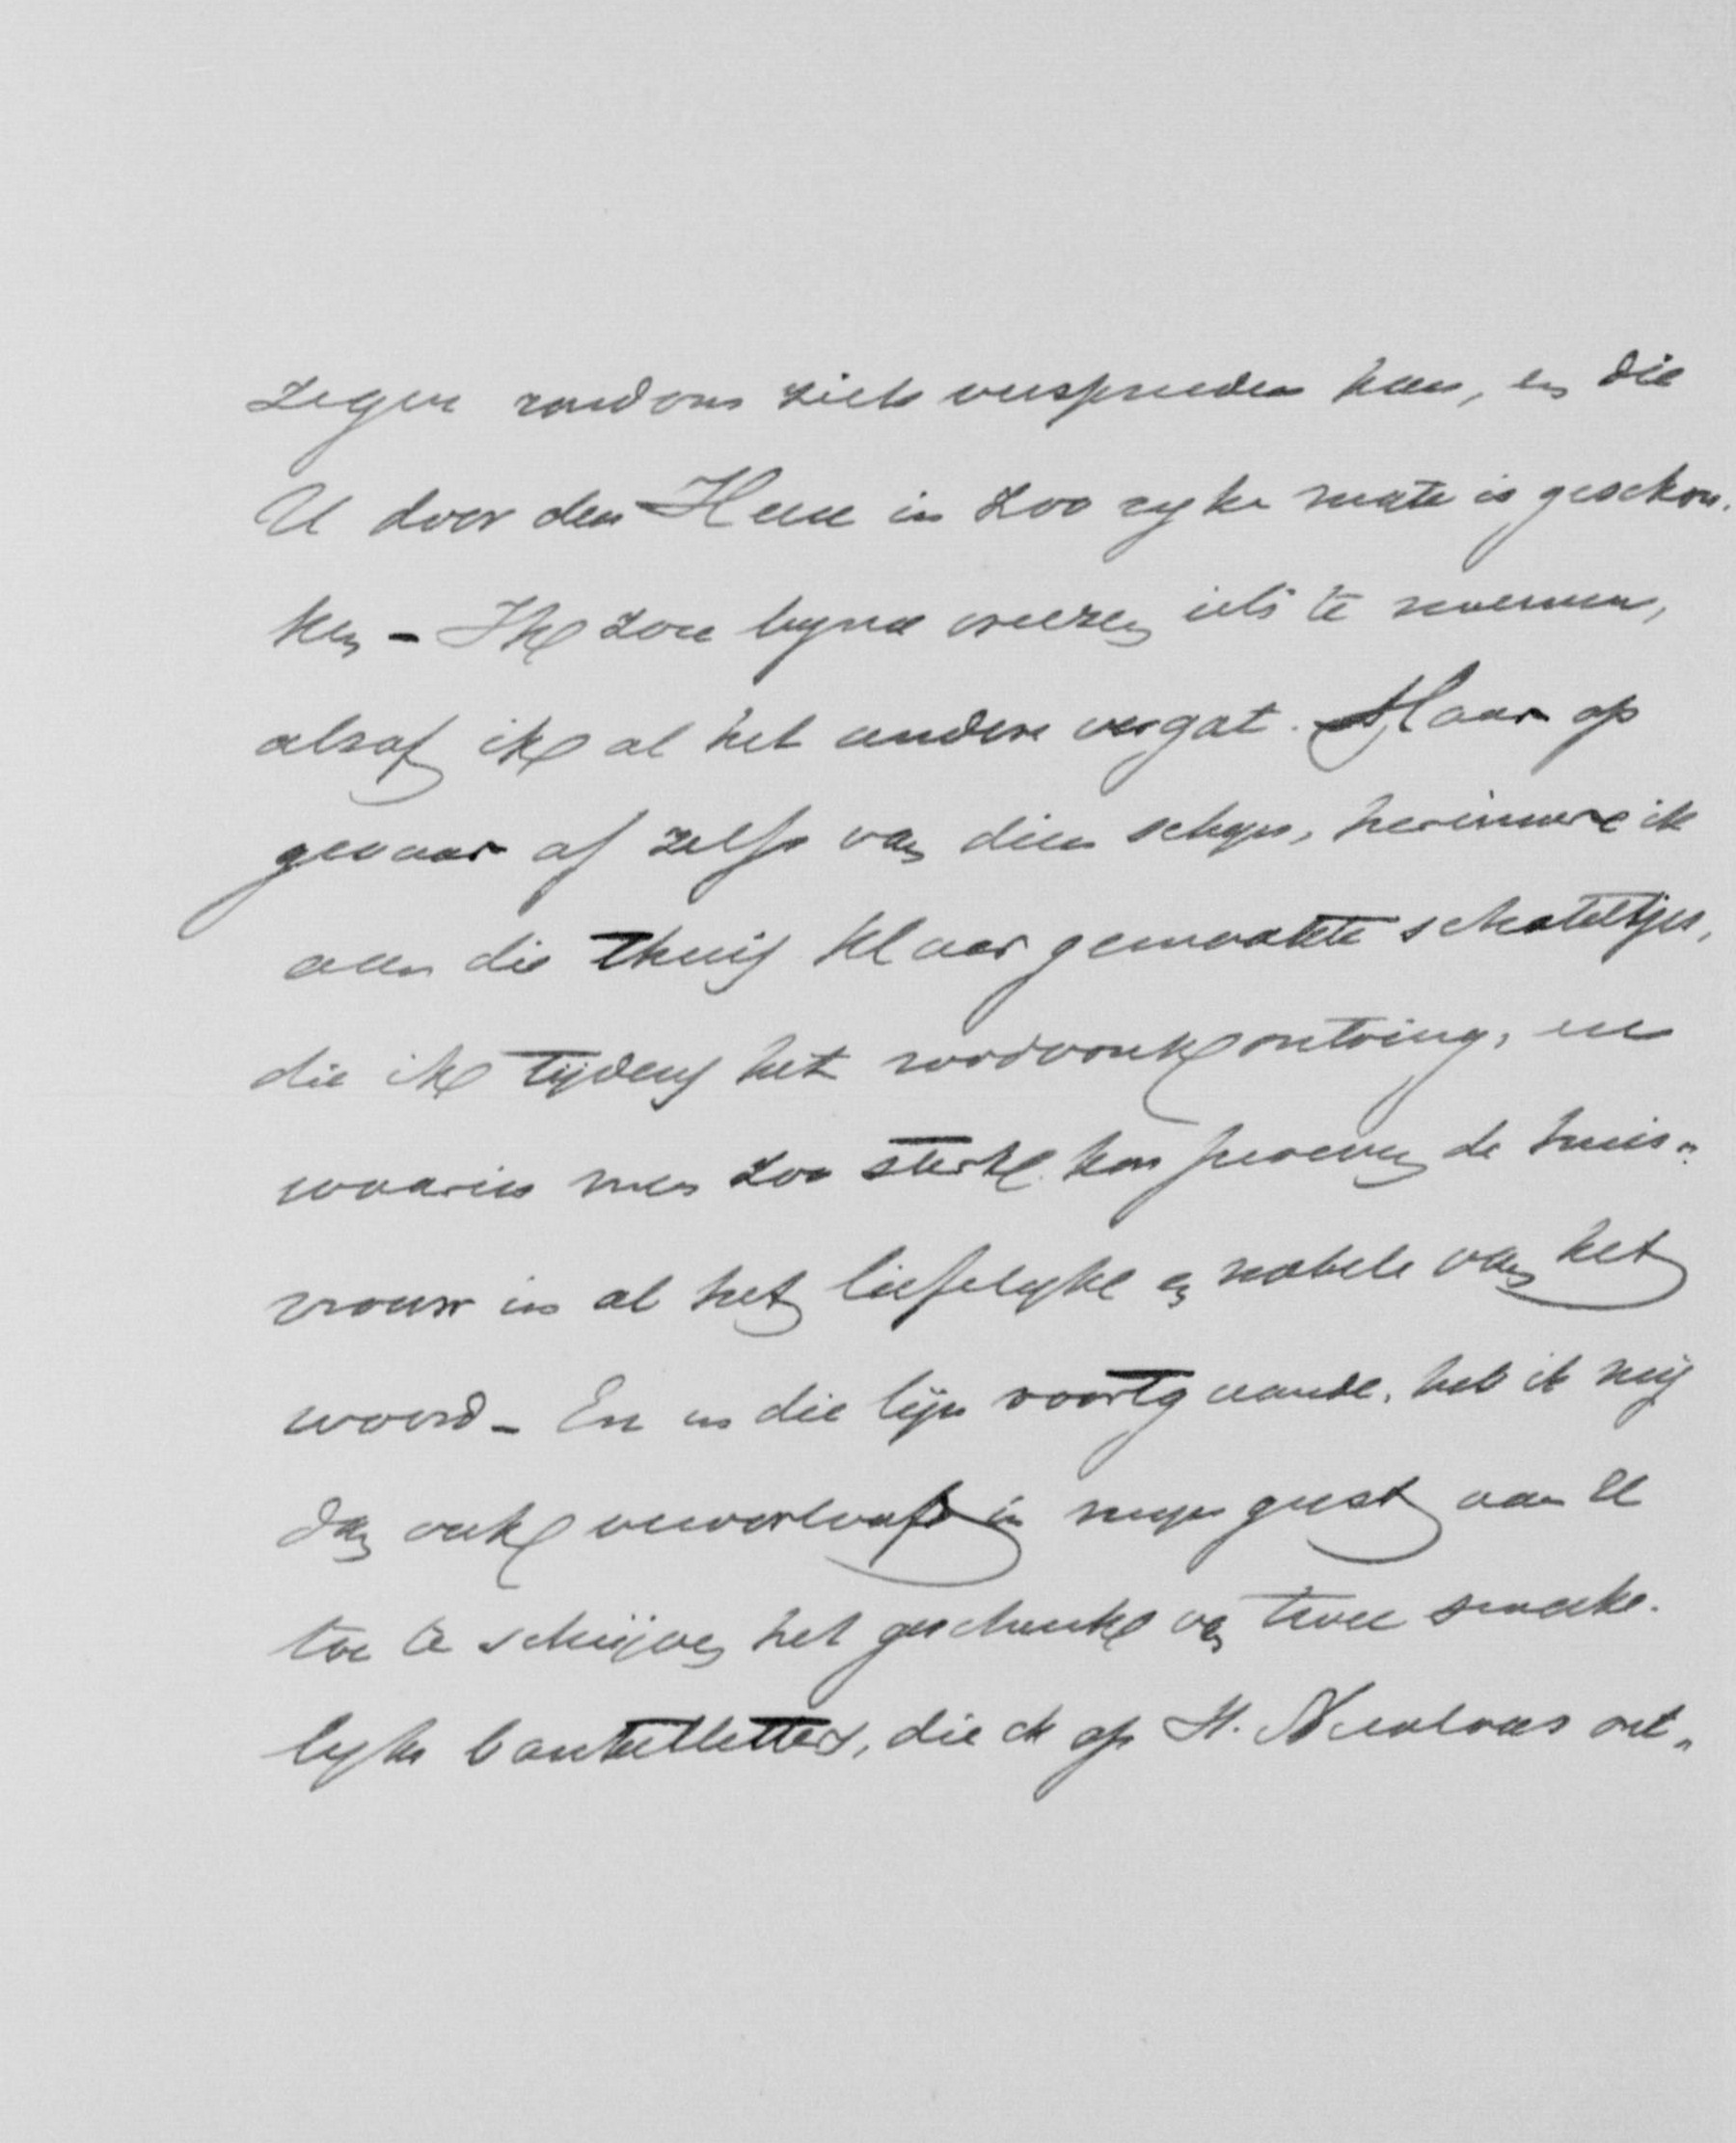 zegen rondom zich verspreiden kan, en die
U door den Heere in zoo ryke mate is geschon-
ken – Ik zou byna vreezen iets te noemen,
alsof ik al het andere vergat. Maar op
gevaar af zelfs van dien schyn, herinner ik
aan die thuis klaar gemaakte schoteltjes,
die ik tijdens het roodvonk ontving, en
waarin men zoo sterk kon proeven de huis-
vrouw in al het liefelyke en nobele van het
woord – En in die lijn voortgaande, heb ik mij
dan ook veroorloofd in myn geest aan U
toe te schrijven het geschenk van twee smake-
lyke banketletters, die ik op St. Nicolaas ont-